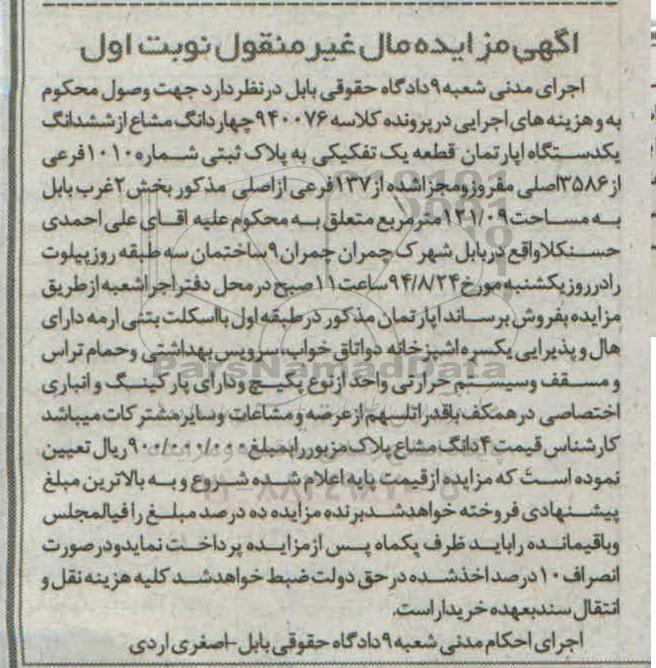 آگهی مزایده مال غیر منقول نوبت اول
اجرای مدنی شعبه ۹ دادگاه حقوقی بابل در نظر دارد جهت وصول محکوم
به و هزینه های اجرایی در پرونده کلاسه ۹۴۰۰۷۶ چهار دانگ مشاع از ششدانگ
یکدستگاه اپارتمان قطعه یک تفکیکی به پلاک ثبتی شماره ۱۰۱۰ فرعی
از ۳۵۸۶ اصلی مفروز و مجزا شده از ۱۳۷ فرعی از اصلی مذکور بخش ۲ غرب بابل
به مساحت ۱۲۱/۰۹ متر مربع متعلق به محکوم علیه اقای علی احمدی
حسنکلا واقع در بابل شهرک چمران چمران ۹ ساختمان سه طبقه روز پیلوت
را در روز یکشنبه مورخ ۹۴/۸/۲۴ ساعت ۱۱ صبح در محل دفتر اجرا شعبه از طریق
مزایده بفروش برساند اپارتمان مذکور در طبقه اول با اسکلت بتنی ارمه دارای
هال و پذیرایی یکسره اشپزخانه دو اتاق خواب، سرویس بهداشتی و حمام تراس
و مسقف و سیستم حرارتی واحد از نوع پکیج و دارای پارکینگ و انباری
اختصاصی در همکف با قدرالسهم از عرصه و مشاعات و سایر مشترکات میباشد
کارشناس قیمت ۴ دانگ مشاع پلاک مزبور را بمبلغ ۹۰۰/۰۰۰/۰۰۰ ریال تعیین
نموده است که مزایده از قیمت پایه اعلام شده شروع و به بالاترین مبلغ
پیشنهادی فروخته خواهد شد برنده مزایده ده درصد مبلغ را فی المجلس
و باقیمانده را باید ظرف یکماه پس از مزایده پرداخت نماید و در صورت
انصراف ۱۰ درصد اخذ شده در حق دولت ضبط خواهد شد کلیه هزینه نقل و
انتقال سند بعهده خریدار است.
اجرای احکام مدنی شعبه ۹ دادگاه حقوقی بابل - اصغری اردی
ParsNamadData